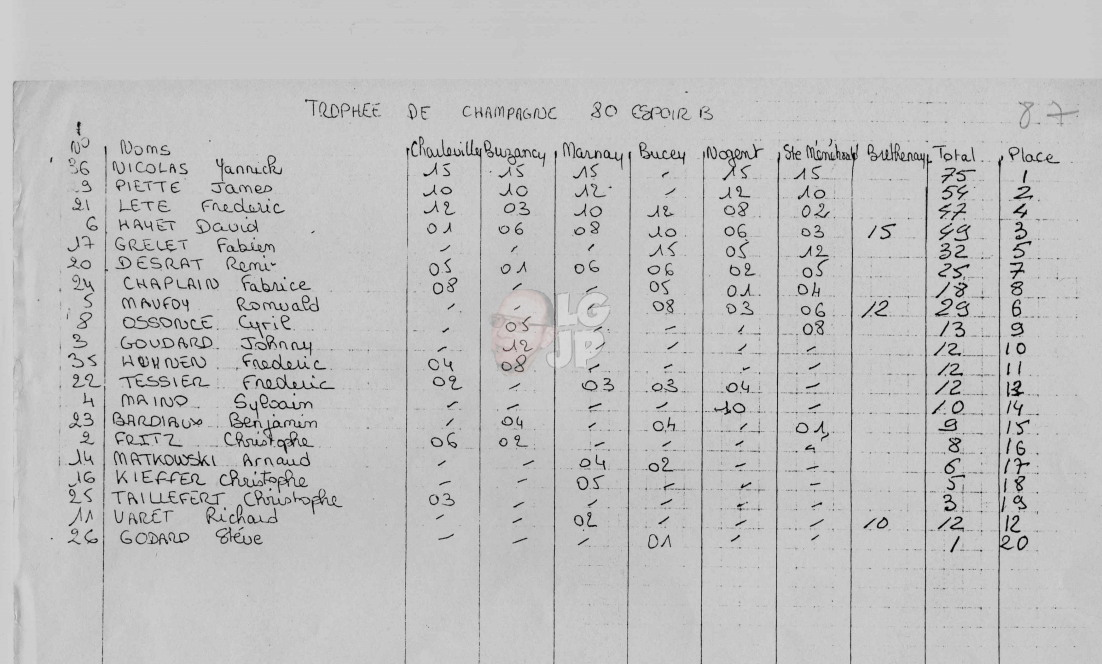 TROPHEE DE CHAMPAGNE 80 ESPOIR B 87
N° Noms Charleville Buzancy Marnay Bucey Nogent Ste Ménéhould Brethenay Total Place
36 NICOLAS Yannick 15 15 15 - 15 15 75 1
9 PIETTE James 10 10 12 - 12 10 54 2
21 LETE Frederic 12 03 10 12 08 02 47 4
6 HAYET David 01 06 08 10 06 03 15 49 3
17 GRELET Fabien - - - 15 05 12 32 5
20 DESRAT Remi 05 01 06 06 02 05 25 7
24 CHAPLAIN Fabrice 08 - - 05 01 04 18 8
5 MAUFOY Romuald - - 08 03 06 12 29 6
8 OSSONCE Cyril - 05 - - - 08 13 9
3 GOUDARD Johnny - 12 - - - - 12 10
35 Frederic 04 08 - - - - 12 11
22 TESSIER Frederic 02 - 03 03 04 - 12 13
4 MAINO Sylvain - - - - 10 - 10 14
23 BARDIAUX Benjamin - 04 - 04 - 01 9 15
2 FRITZ Christophe 06 02 - - - - 8 16
14 MATKOWSKI Arnaud - - 04 02 - - 6 17
16 KIEFFER Christophe - - 05 - - - 5 18
25 TAILLEFERT Christophe 03 - - - - - 3 19
11 VARET Richard - - 02 - - - 10 12 12
26 GODARD Stéve - - - 01 - - 1 20
LG
JP